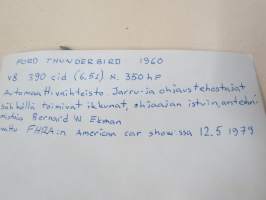 FORD THUNDERBIRD 1960
V8 390 cid (6,5 l) N. 350 hp
Automaattivaihteisto. Jarru- ja ohjaustehostajat
sähköllä toimivat ikkunat, ohjaajan istuin, antenni
Bernard W. Ekman
FHRA:n American car show:ssa 12.5 1979